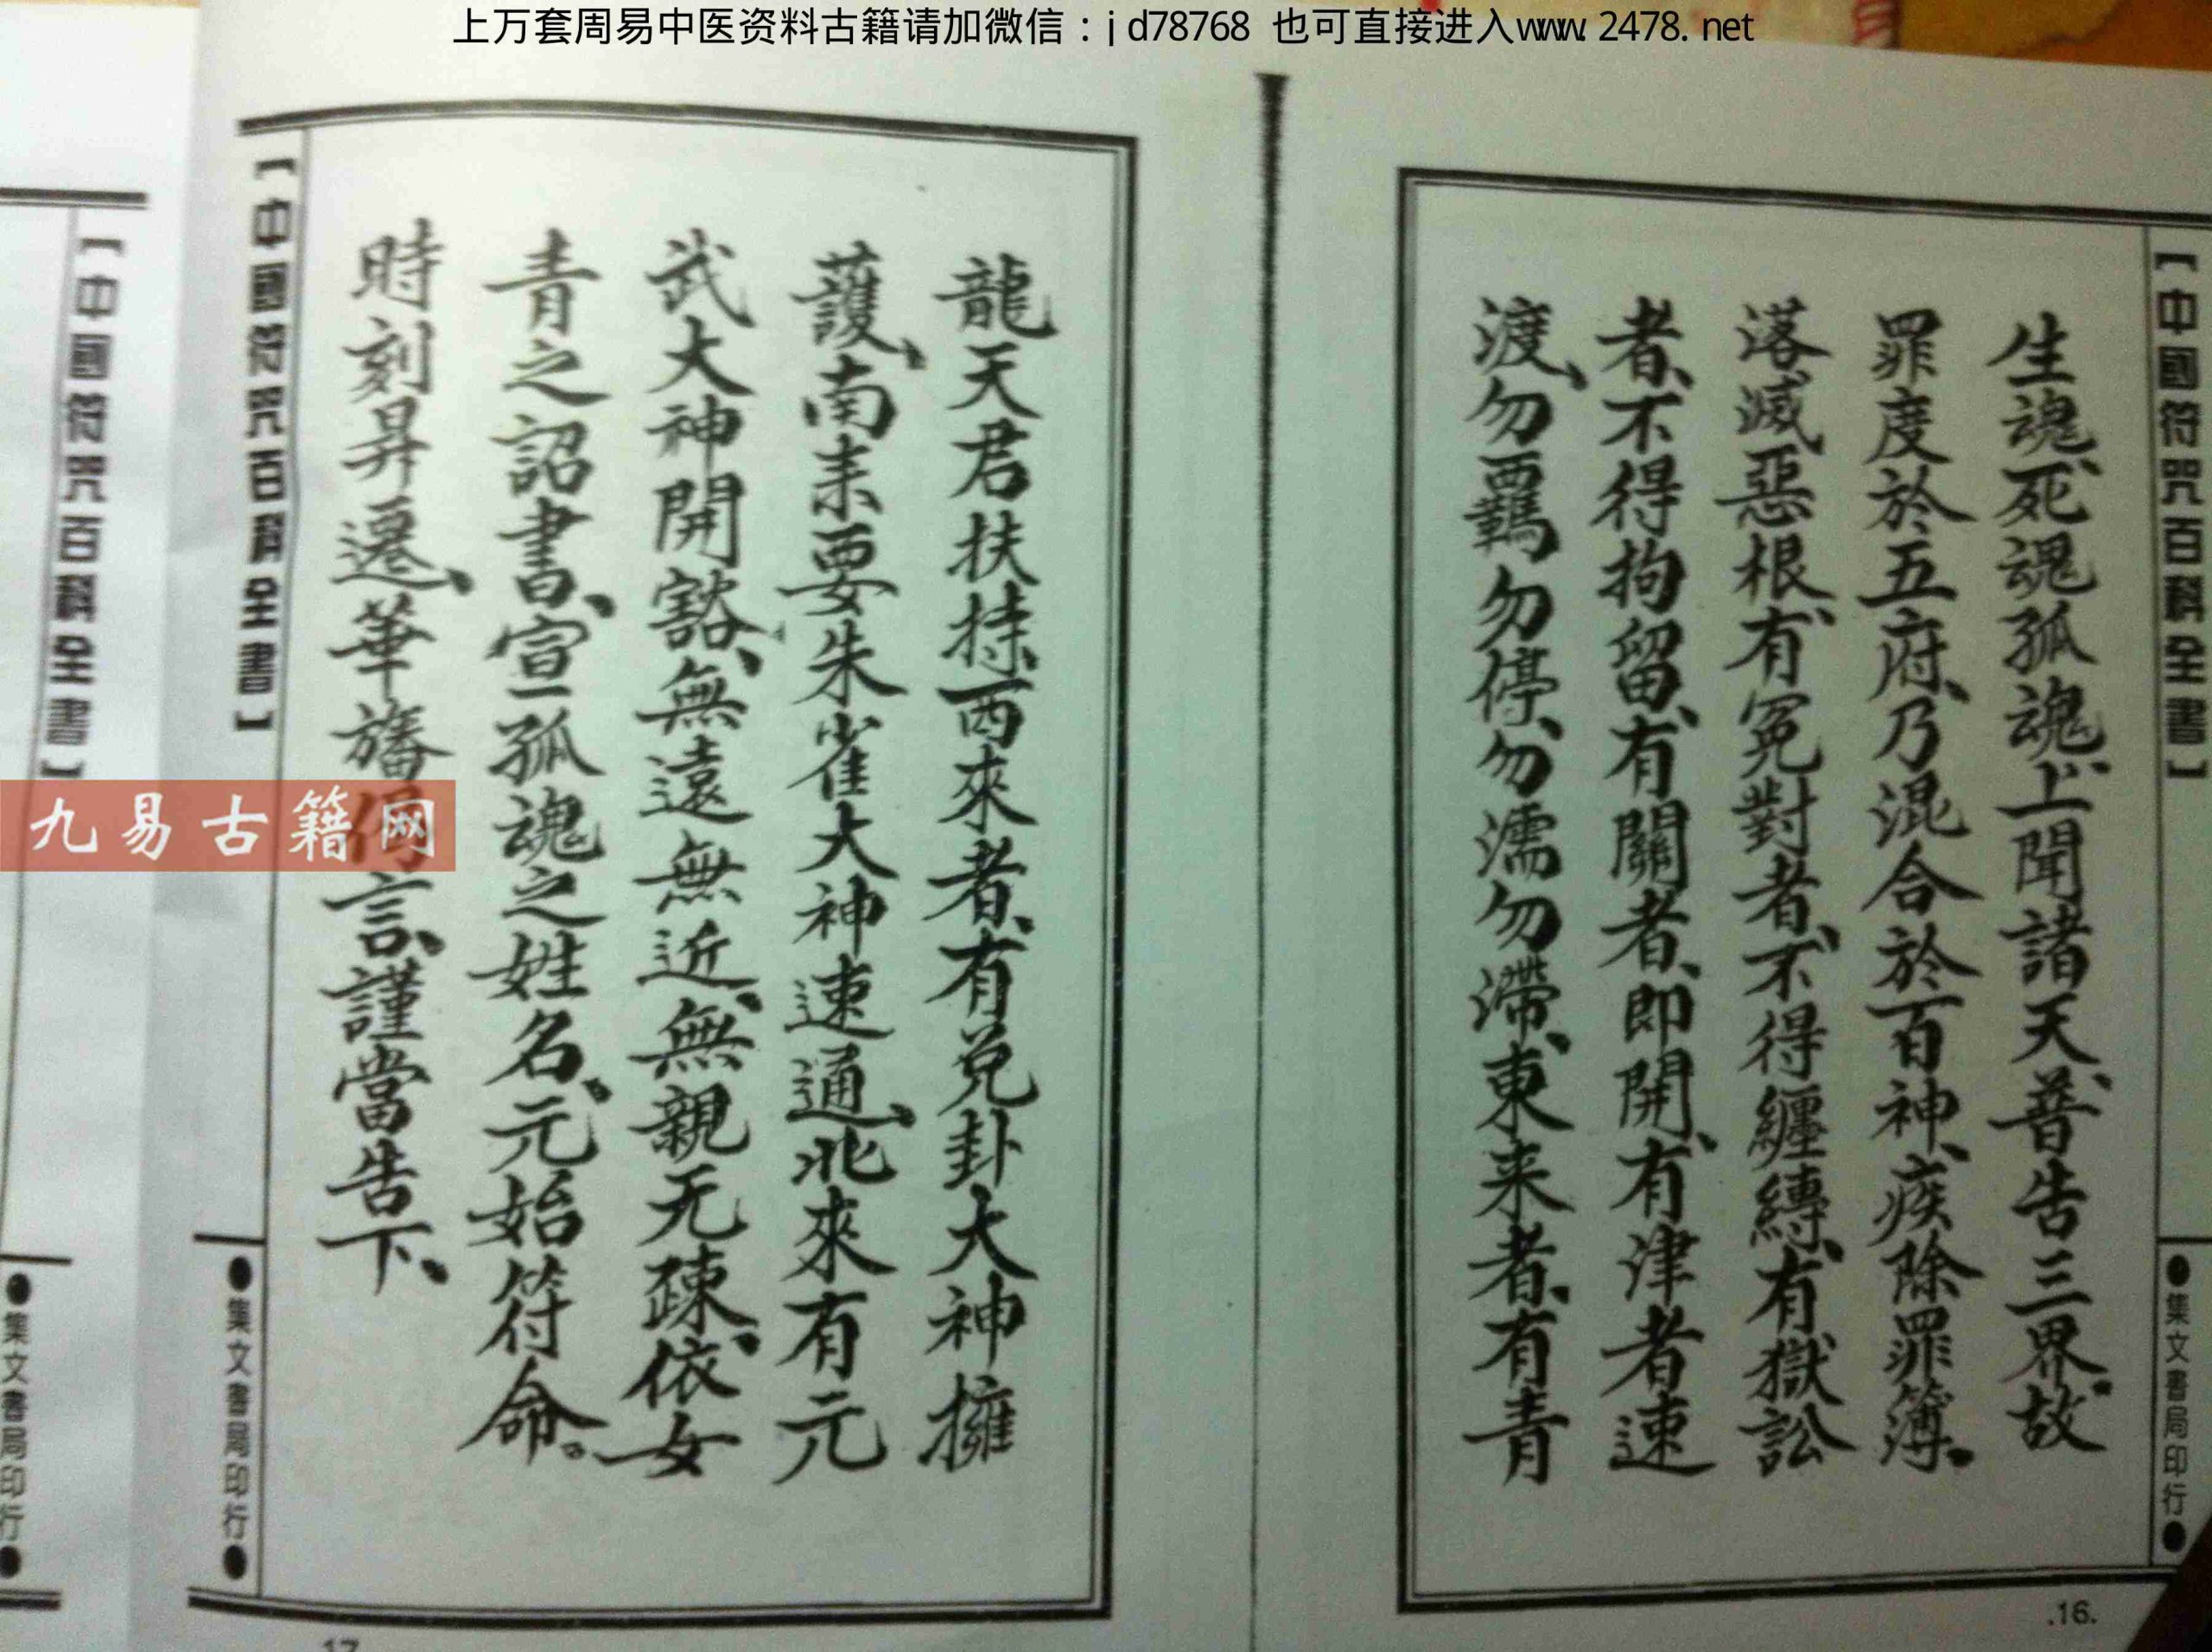 上万套周易中医资料古籍请加微信：jd78768 也可直接进入www.2478.net
【中國符咒百科全書】
●集文書局印行●
生魂、死魂孤魂、上聞諸天、普告三界、故
罪度於五府、乃混合於百神、疾除罪簿、
落滅惡根、有冤對者、不得纏縛、有獄訟
者、不得拘留、有關者、即開、有津者速
渡、勿羈勿停、勿濡勿滯、東来者、有青
.16.
龍天君扶持、西來者、有兌卦大神擁
護、南来要朱雀大神速通、北來有元
武大神開豁、無遠無近、無親无疎、依女
青之詔書、宣一孤魂之姓名、元始符命。
時刻昇遷、華旛 言、謹當告下、
【中國符咒百科全書】
●集文書局印行●
17
【中國符咒百科全書】
●集文書局印行●
九易古籍网